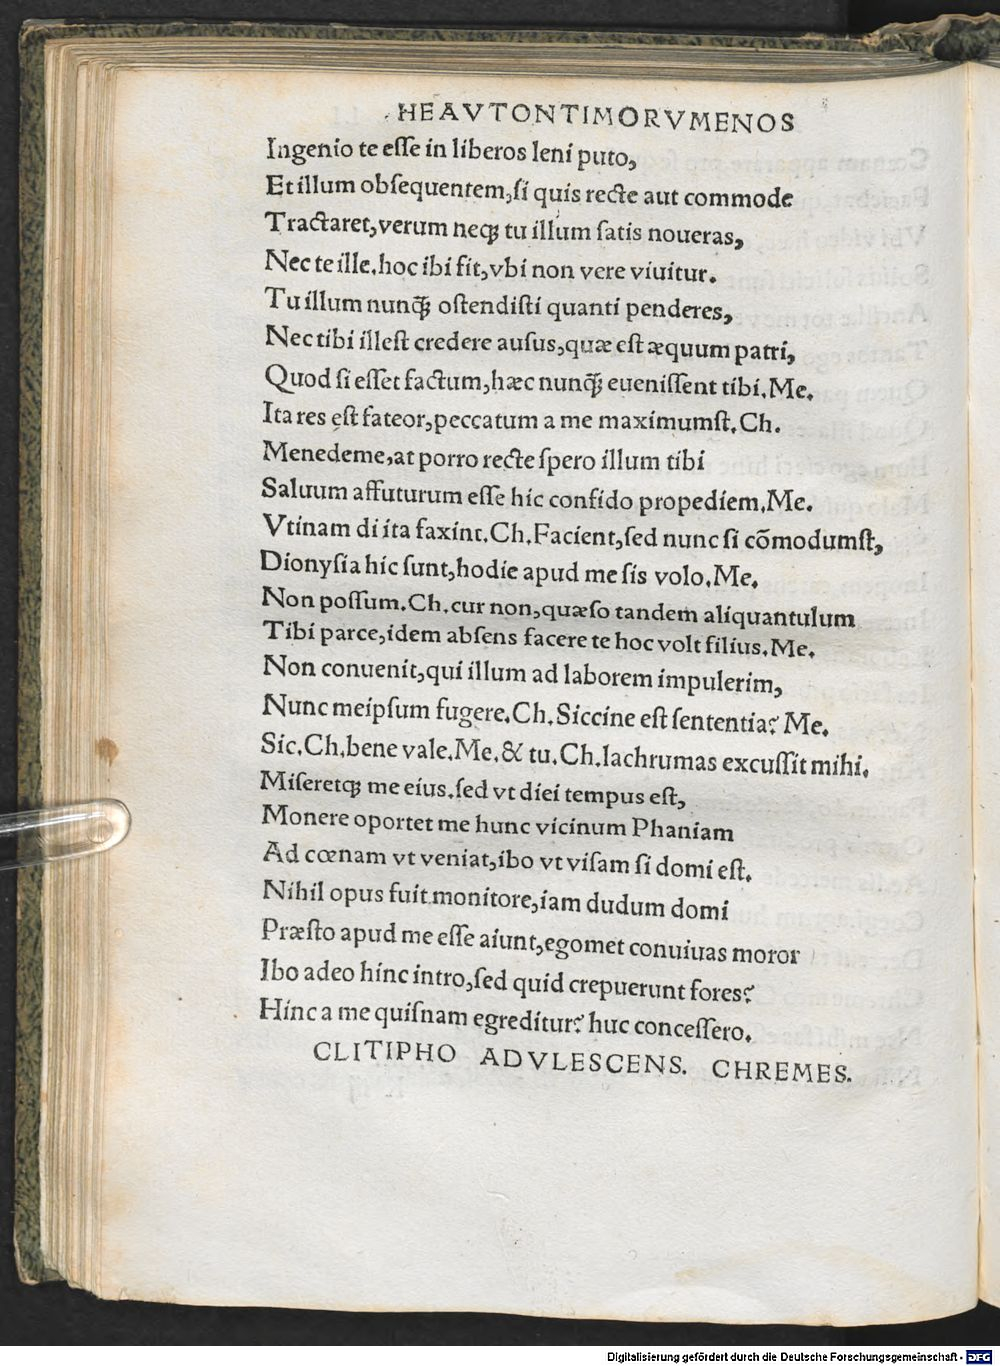 HEAVTONTIMORVMENOS
Ingenio te eſſe in liberos leni puto,
Et illum obſequentem,ſi quis recte aut commode
Tractaret,verum neqꝫ tu illum ſatis noueras,
Nec te ille.hoc ibi fit,vbi non vere viuitur.
Tu illum nunq̃ꝫ oſtendiſti quanti penderes,
Nec tibi illeſt credere auſus,quæ eſt æquum patri,
Quod ſi eſſet factum,hæc nunq̃ꝫ eueniſſent tibi.Me.
Ita res eſt fateor,peccatum a me maximumſt.Ch.
Menedeme,at porro recte ſpero illum tibi
Saluum affuturum eſſe hic confido propediem.Me.
Vtinam di ita faxint.Ch.Facient,ſed nunc ſi cõmodumſt,
Dionyſia hic ſunt,hodie apud me ſis volo.Me.
Non poſſum.Ch.cur non,quæſo tandem aliquantulum
Tibi parce,idem abſens facere te hoc volt filius.Me.
Non conuenit,qui illum ad laborem impulerim,
Nunc meipſum fugere.Ch.Siccine eſt ſententia? Me.
Sic.Ch.bene vale.Me.& tu.Ch.lachrumas excuſſit mihi.
Miſeretqꝫ me eius.ſed vt diei tempus eſt,
Monere oportet me hunc vicinum Phaniam
Ad cœnam vt veniat,ibo vt viſam ſi domi eſt.
Nihil opus fuit monitore,iam dudum domi
Præſto apud me eſſe aiunt,egomet conuiuas moror
Ibo adeo hinc intro,ſed quid crepuerunt fores?
Hinc a me quiſnam egreditur? huc conceſſero.
CLITIPHO ADVLESCENS. CHREMES.
Digitalisierung gefördert durch die Deutsche Forschungsgemeinschaft - DFG